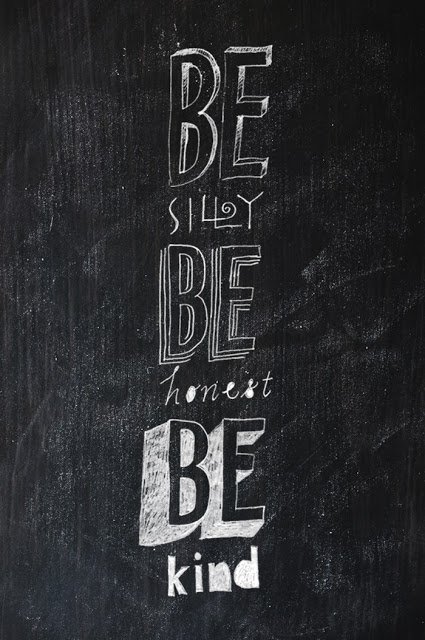 BE
SILLY
BE
honest
BE
kind